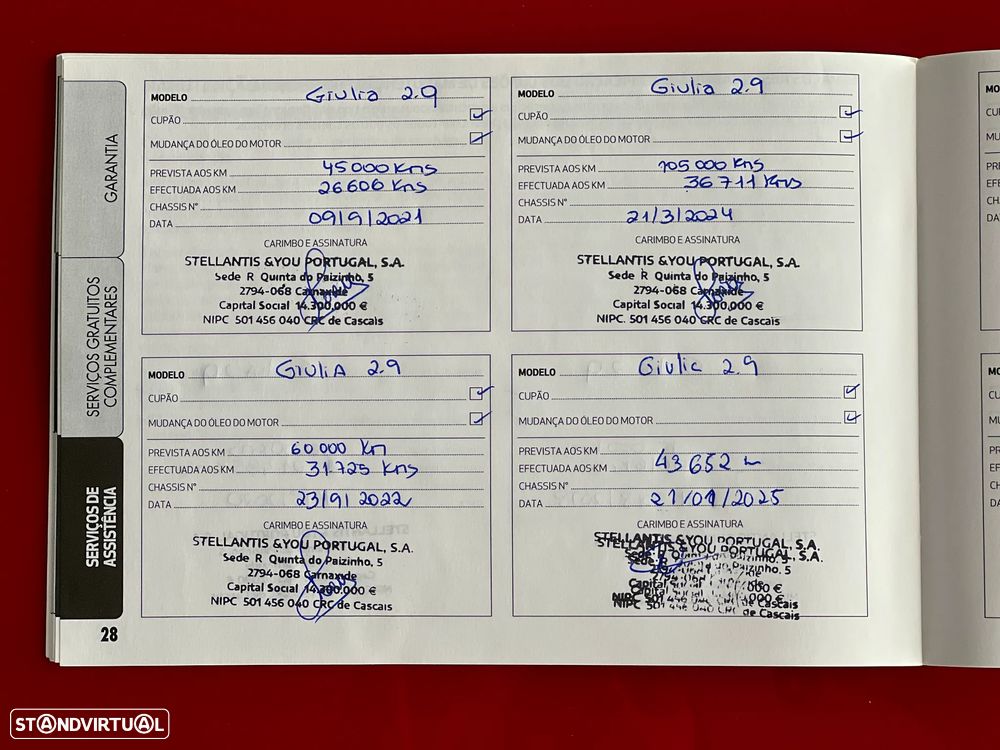 GARANTIA
SERVIÇOS GRATUITOS
COMPLEMENTARES
SERVIÇOS DE
ASSISTÊNCIA
28
MODELO Giulia 2.9
CUPÃO
MUDANÇA DO ÓLEO DO MOTOR
PREVISTA AOS KM 45000 Kms
EFECTUADA AOS KM 26606 Kms
CHASSIS Nº
DATA 09/9/2021
CARIMBO E ASSINATURA
STELLANTIS &YOU PORTUGAL, S.A.
Sede R Quinta do Paizinho, 5
2794-068 Carnaxide
Capital Social 14.300,000 €
NIPC 501 456 040 CRC de Cascais
MODELO Giulia 2.9
CUPÃO
MUDANÇA DO ÓLEO DO MOTOR
PREVISTA AOS KM 105000 Kms
EFECTUADA AOS KM 36711 Kms
CHASSIS Nº
DATA 21/3/2024
CARIMBO E ASSINATURA
STELLANTIS &YOU PORTUGAL, S.A.
Sede R Quinta do Paizinho, 5
2794-068 Carnaxide
Capital Social 14.300,000 €
NIPC. 501 456 040 CRC de Cascais
MODELO GiuliA 2.9
CUPÃO
MUDANÇA DO ÓLEO DO MOTOR
PREVISTA AOS KM 60000 Km
EFECTUADA AOS KM 31.725 Kms
CHASSIS Nº
DATA 23/9/2022
CARIMBO E ASSINATURA
STELLANTIS &YOU PORTUGAL, S.A.
Sede R Quinta do Paizinho, 5
2794-068 Carnaxide
Capital Social 14.300.000 €
NIPC 501 456 040 CRC de Cascais
MODELO Giulia 2.9
CUPÃO
MUDANÇA DO ÓLEO DO MOTOR
PREVISTA AOS KM
EFECTUADA AOS KM 43652
CHASSIS Nº
DATA
CARIMBO E ASSINATURA
STELLANTIS &YOU PORTUGAL, S.A.
MO
CU
MU
PRE
EFE
CH
DA
MO
CU
MU
PRE
EFE
CHA
DA
STANDVIRTUAL